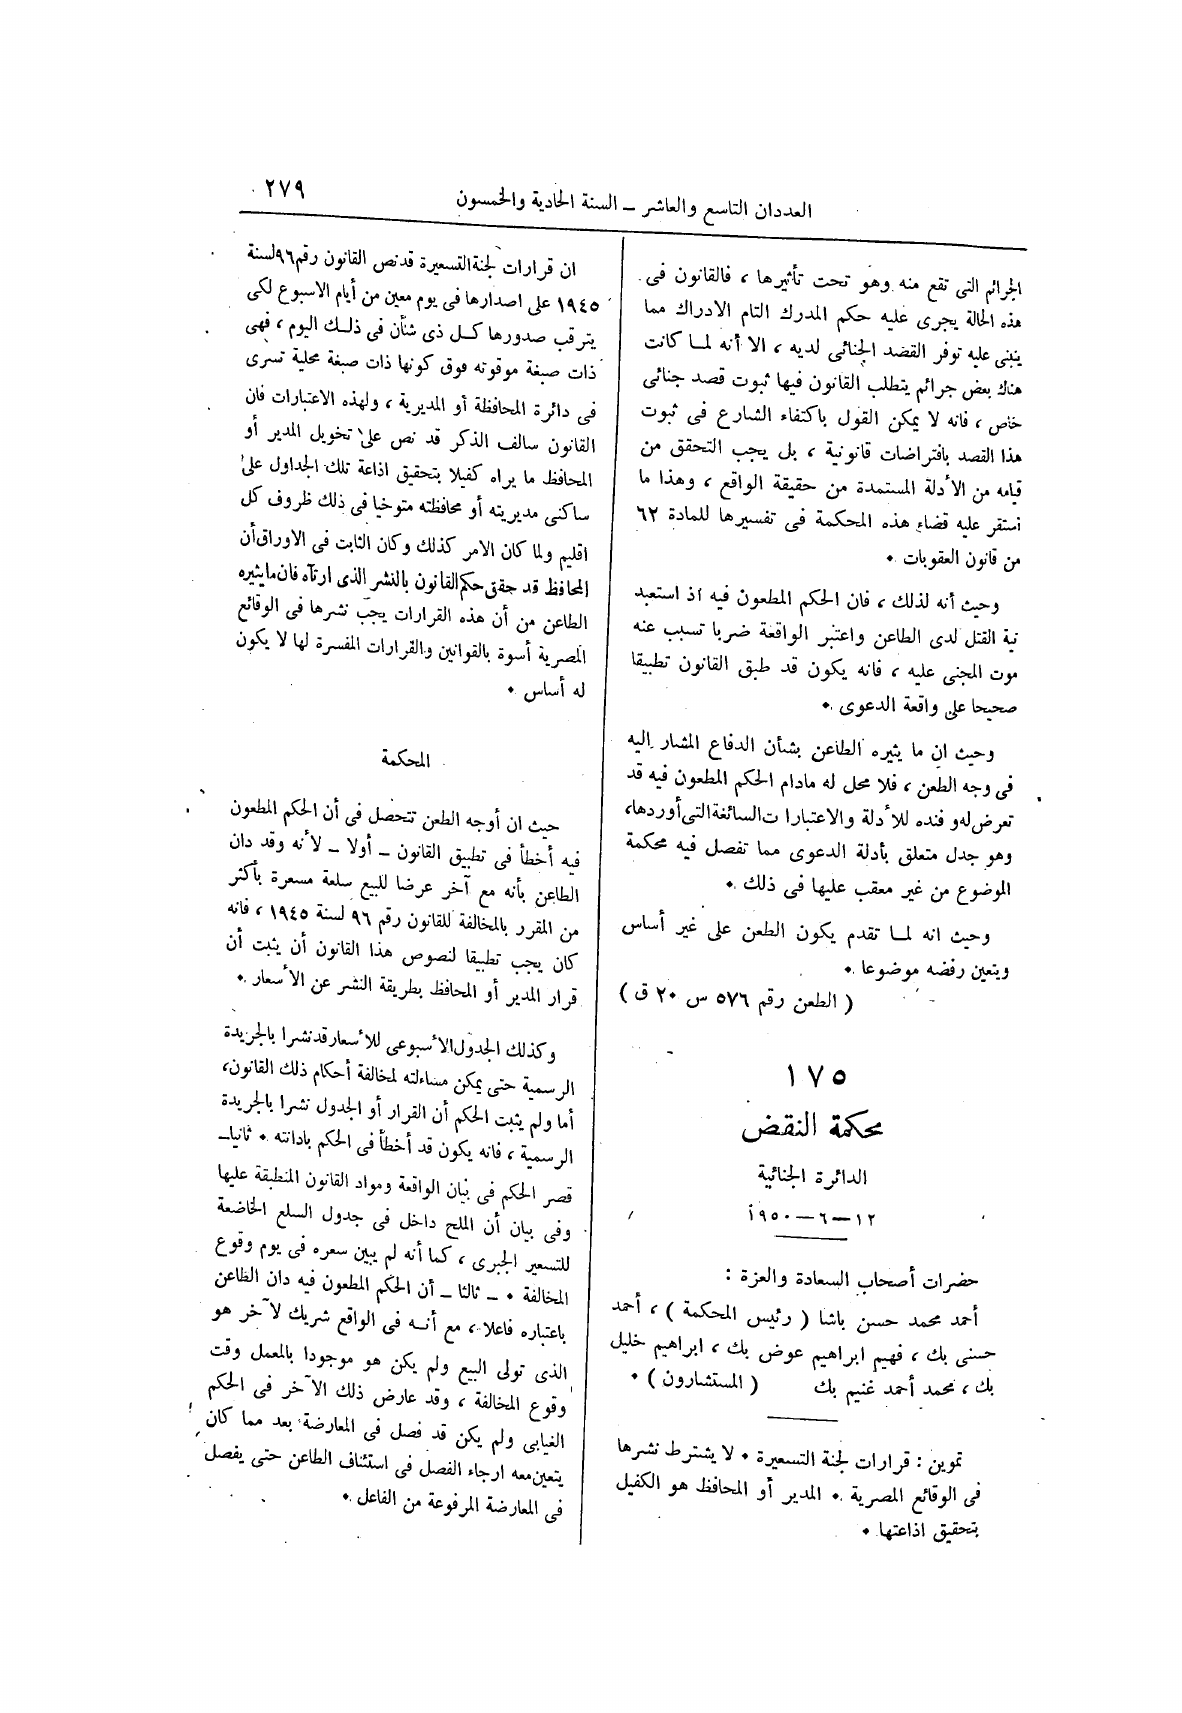 العددان التاسع والعاشر ــ السنة الحادية والخمسون
٢٧٩
الجرائم التى تقع منه وهو تحت تأثيرها ، فالقانون فى
هذه الحالة يجرى عليه حكم المدرك التام الادراك مما
ينبنى عليه توفر القصد الجنائى لديه ، الا أنه لما كانت
هناك بعض جرائم يتطلب القانون فيها ثبوت قصد جنائى
خاص ، فانه لا يمكن القول باكتفاء الشارع فى ثبوت
هذا القصد بافتراضات قانونية ، بل يجب التحقق من
قيامه من الأدلة المستمدة من حقيقة الواقع ، وهذا ما
استقر عليه قضاء هذه المحكمة فى تفسيرها للمادة ٦٢
من قانون العقوبات .
وحيث أنه لذلك ، فان الحكم المطعون فيه اذ استعبد
نية القتل لدى الطاعن واعتبر الواقعة ضربا تسبب عنه
موت المجنى عليه ، فانه يكون قد طبق القانون تطبيقا
صحيحا على واقعة الدعوى .
وحيث ان ما يثيره الطاعن بشأن الدفاع المشار اليه
فى وجه الطعن ، فلا محل له مادام الحكم المطعون فيه قد
تعرض له وفنده للأدلة والاعتبارات السائغة التى أوردها،
وهو جدل متعلق بأدلة الدعوى مما تفصل فيه محكمة
الموضوع من غير معقب عليها فى ذلك .
وحيث انه لما تقدم يكون الطعن على غير أساس
ويتعين رفضه موضوعا .
( الطعن رقم ٥٧٦ س ٢٠ ق )
١٧٥
محكمة النقض
الدائرة الجنائية
١٢ــ٦ــ١٩٥٠
حضرات أصحاب السعادة والعزة :
أحمد محمد حسن باشا ( رئيس المحكمة ) ، أحمد
حسنى بك ، فهيم ابراهيم عوض بك ، ابراهيم خليل
بك ، محمد أحمد غنيم بك ( المستشارون ) .
تموين : قرارات لجنة التسعيرة . لا يشترط نشرها
فى الوقائع المصرية . المدير أو المحافظ هو الكفيل
بتحقيق اذاعتها .
ان قرارات لجنة التسعيرة قد نص القانون رقم ٩٦ لسنة
١٩٤٥ على اصدارها فى يوم معين من أيام الاسبوع لكى
يترقب صدورها كل ذى شأن فى ذلك اليوم ، فهى
ذات صبغة موقوته فوق كونها ذات صبغة محلية تسرى
فى دائرة المحافظة أو المديرية ، ولهذه الاعتبارات فان
القانون سالف الذكر قد نص على تخويل المدير أو
المحافظ ما يراه كفيلا بتحقيق اذاعة تلك الجداول على
ساكنى مديريته أو محافظته متوخيا فى ذلك ظروف كل
اقليم ولما كان الامر كذلك وكان الثابت فى الاوراق أن
المحافظ قد حقق حكم القانون بالنشر الذى ارتآه فان ما يثيره
الطاعن من أن هذه القرارات يجب نشرها فى الوقائع
المصرية أسوة بالقوانين والقرارات المفسرة لها لا يكون
له أساس .
المحكمة
حيث ان أوجه الطعن تتحصل فى أن الحكم المطعون
فيه أخطأ فى تطبيق القانون ــ أولا ــ لأنه وقد دان
الطاعن بأنه مع آخر عرضا للبيع سلعة مسعرة بأكثر
من المقرر بالمخالفة للقانون رقم ٩٦ لسنة ١٩٤٥ ، فانه
كان يجب تطبيقا لنصوص هذا القانون أن يثبت أن
قرار المدير أو المحافظ بطريقة النشر عن الأسعار .
وكذلك الجدول الأسبوعى للأسعار قد نشرا بالجريدة
الرسمية حتى يمكن مساءلته لمخالفة أحكام ذلك القانون،
أما ولم يثبت الحكم أن القرار أو الجدول نشرا بالجريدة
الرسمية ، فانه يكون قد أخطأ فى الحكم بادانته . ثانياــ
قصر الحكم فى بيان الواقعة ومواد القانون المنطبقة عليها
وفى بيان أن الملح داخل فى جدول السلع الخاضعة
للتسعير الجبرى ، كما أنه لم يبين سعره فى يوم وقوع
المخالفة . ــ ثالثا ــ أن الحكم المطعون فيه دان الطاعن
باعتباره فاعلا ، مع أنه فى الواقع شريك لآخر هو
الذى تولى البيع ولم يكن هو موجودا بالمعمل وقت
وقوع المخالفة ، وقد عارض ذلك الآخر فى الحكم
الغيابى ولم يكن قد فصل فى المعارضة بعد مما كان
يتعين معه ارجاء الفصل فى استئناف الطاعن حتى يفصل
فى المعارضة المرفوعة من الفاعل .